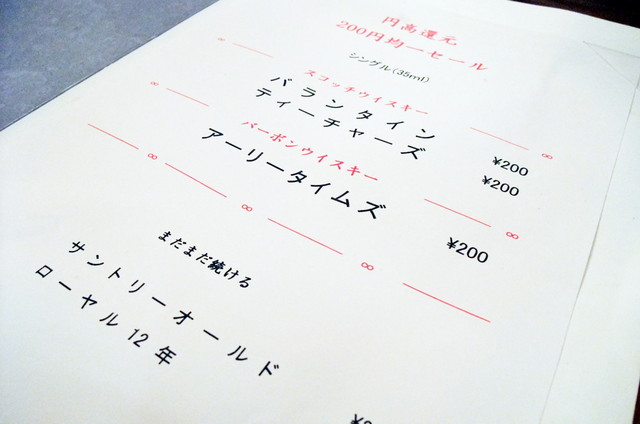 円高還元
200円均一セール
シングル(35ml)
スコッチウイスキー
バランタイン ¥200
ティーチャーズ ¥200
バーボンウイスキー
アーリータイムズ ¥200
まだまだ続ける
サントリーオールド
ローヤル12年